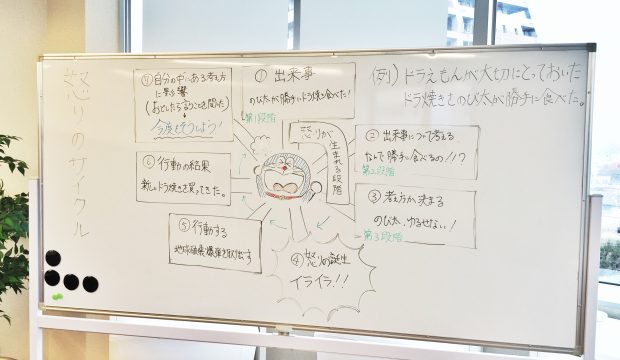 怒りのサイクル
例) ドラえもんが大切にとっておいた
ドラ焼きものび太が勝手に食べた。
① 出来事
のび太が勝手にドラ焼き食べた!
第1段階
怒りが
生まれる段階
② 出来事について考える
なんで勝手に食べるの!!?
第2段階
③ 考え方が決まる
のび太、ゆるせない!
第3段階
④ 怒りの誕生
イライラ!!
⑤ 行動する
地球破壊爆弾を取出す
⑥ 行動の結果
新しいドラ焼きを買ってきた。
⑦ 自分の中にある考え方
に影響
(おどしたら言うことを聞いた)
今度もそうしよう!